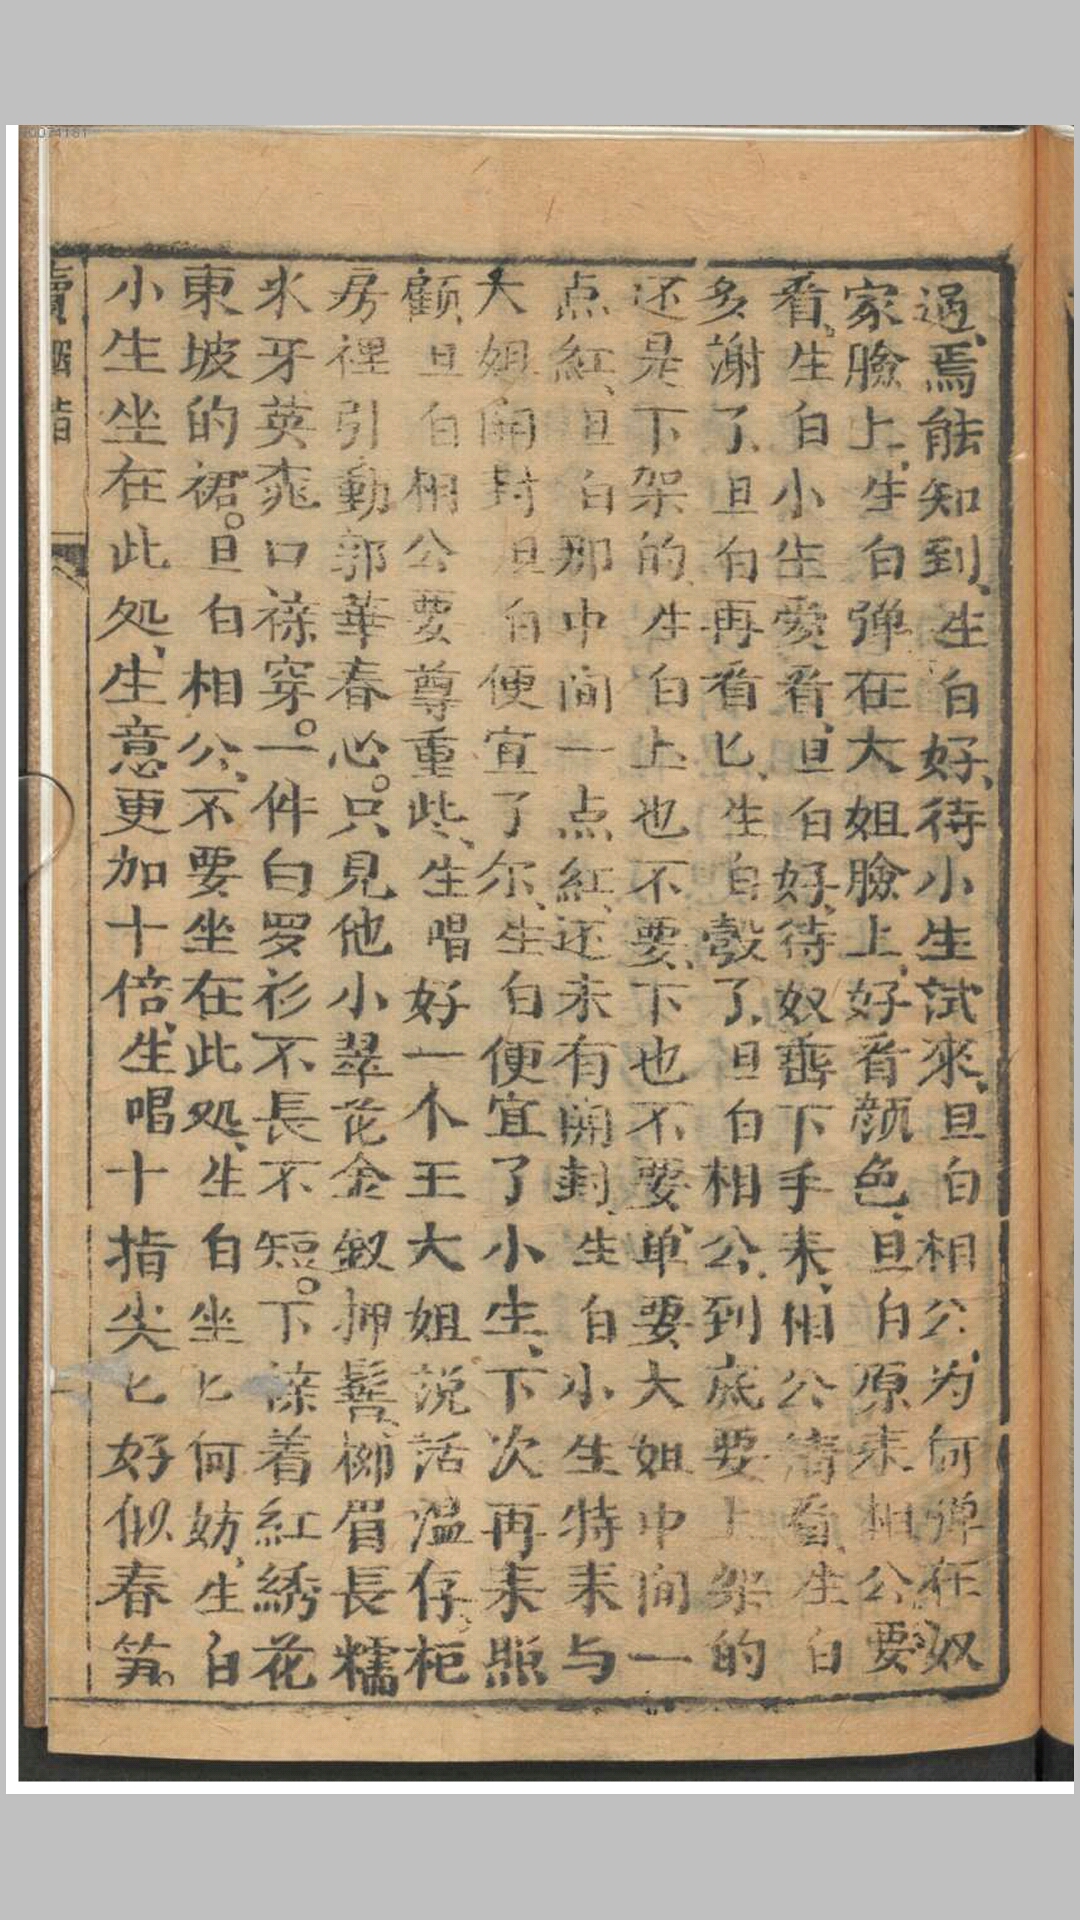 過、焉能知到、生白好、待小生試來、旦白相公、为何弹在奴
家臉上、生白弹在大姐臉上、好看颜色、旦白原来相公要
看、生白小生爱看、旦白好、待奴垂下手来、相公請看、生白
多謝了、旦白再看匕、生白彀了、旦白相公、到底要上架的
还是下架的、生白上也不要、下也不要、单要大姐中间一
点紅、旦白那中间一点紅、还未有開封、生白小生特来与
大姐開封、旦白便宜了尔、生白便宜了小生、下次再来照
顧、旦白相公要尊重些、生唱好一个王大姐説話温存、柜
房裡引動郭華春心。只見他小翠花金釵押鬂、柳眉長糯
米牙英桃口禄穿。一件白罗衫不長不短。下漆着紅綉花
東坡的裙。旦白相公、不要坐在此処、生白坐匕何妨、生白
小生坐在此処、生意更加十倍、生唱十指尖匕好似春笋。
賣胭脂